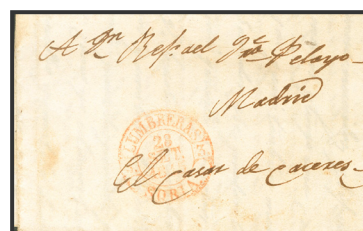 A Dn Rafael Ga Pelayo
Madrid
LUMBRERAS
28
SORIA
El Casar de Caceres